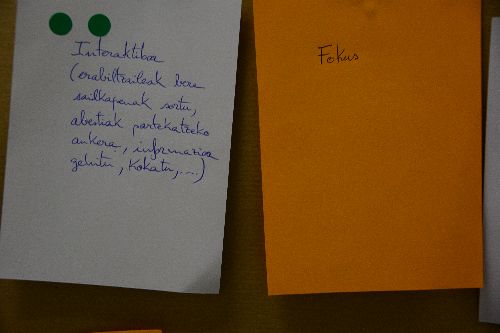 Interaktiboa
(erabiltzaileak bere
sailkapenak sortu,
abestiak partekatzeko
aukera, informazioa
gehitu, kokatu,...)
Fokus